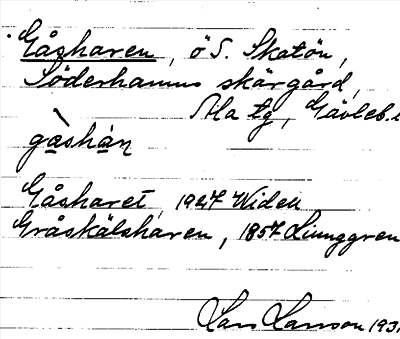 Gåsharen, ö S. Skatön,
Söderhamns skärgård,
Ala tg, Gävleb.
gàshàn
Gåsharet, 1927 Widell
Gråskälsharen, 1857 Ljunggren
Lars Larsson 193